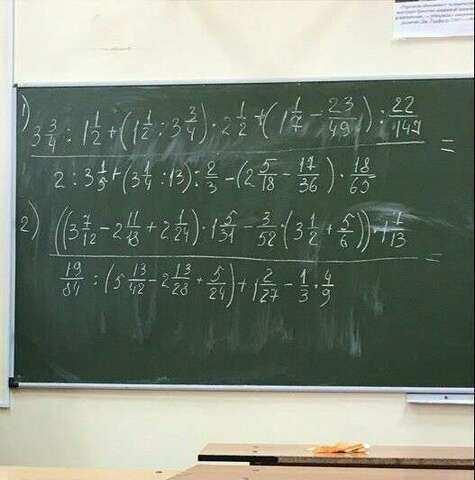 1) 3 3/4 : 1 1/2 + (1 1/2 : 3 3/4) · 2 1/2 + (1 1/7 - 23/49) : 22/147 =
2 : 3 1/5 + (3 1/4 : 13) : 2/3 - (2 5/18 - 17/36) · 18/65
2) ((3 7/12 - 2 11/18 + 2 1/24) · 1 5/31 - 3/52 · (3 1/2 + 5/6)) · 1 7/13 =
19/84 : (5 13/42 - 2 13/28 + 5/24) + 1 2/27 - 1/3 · 4/9